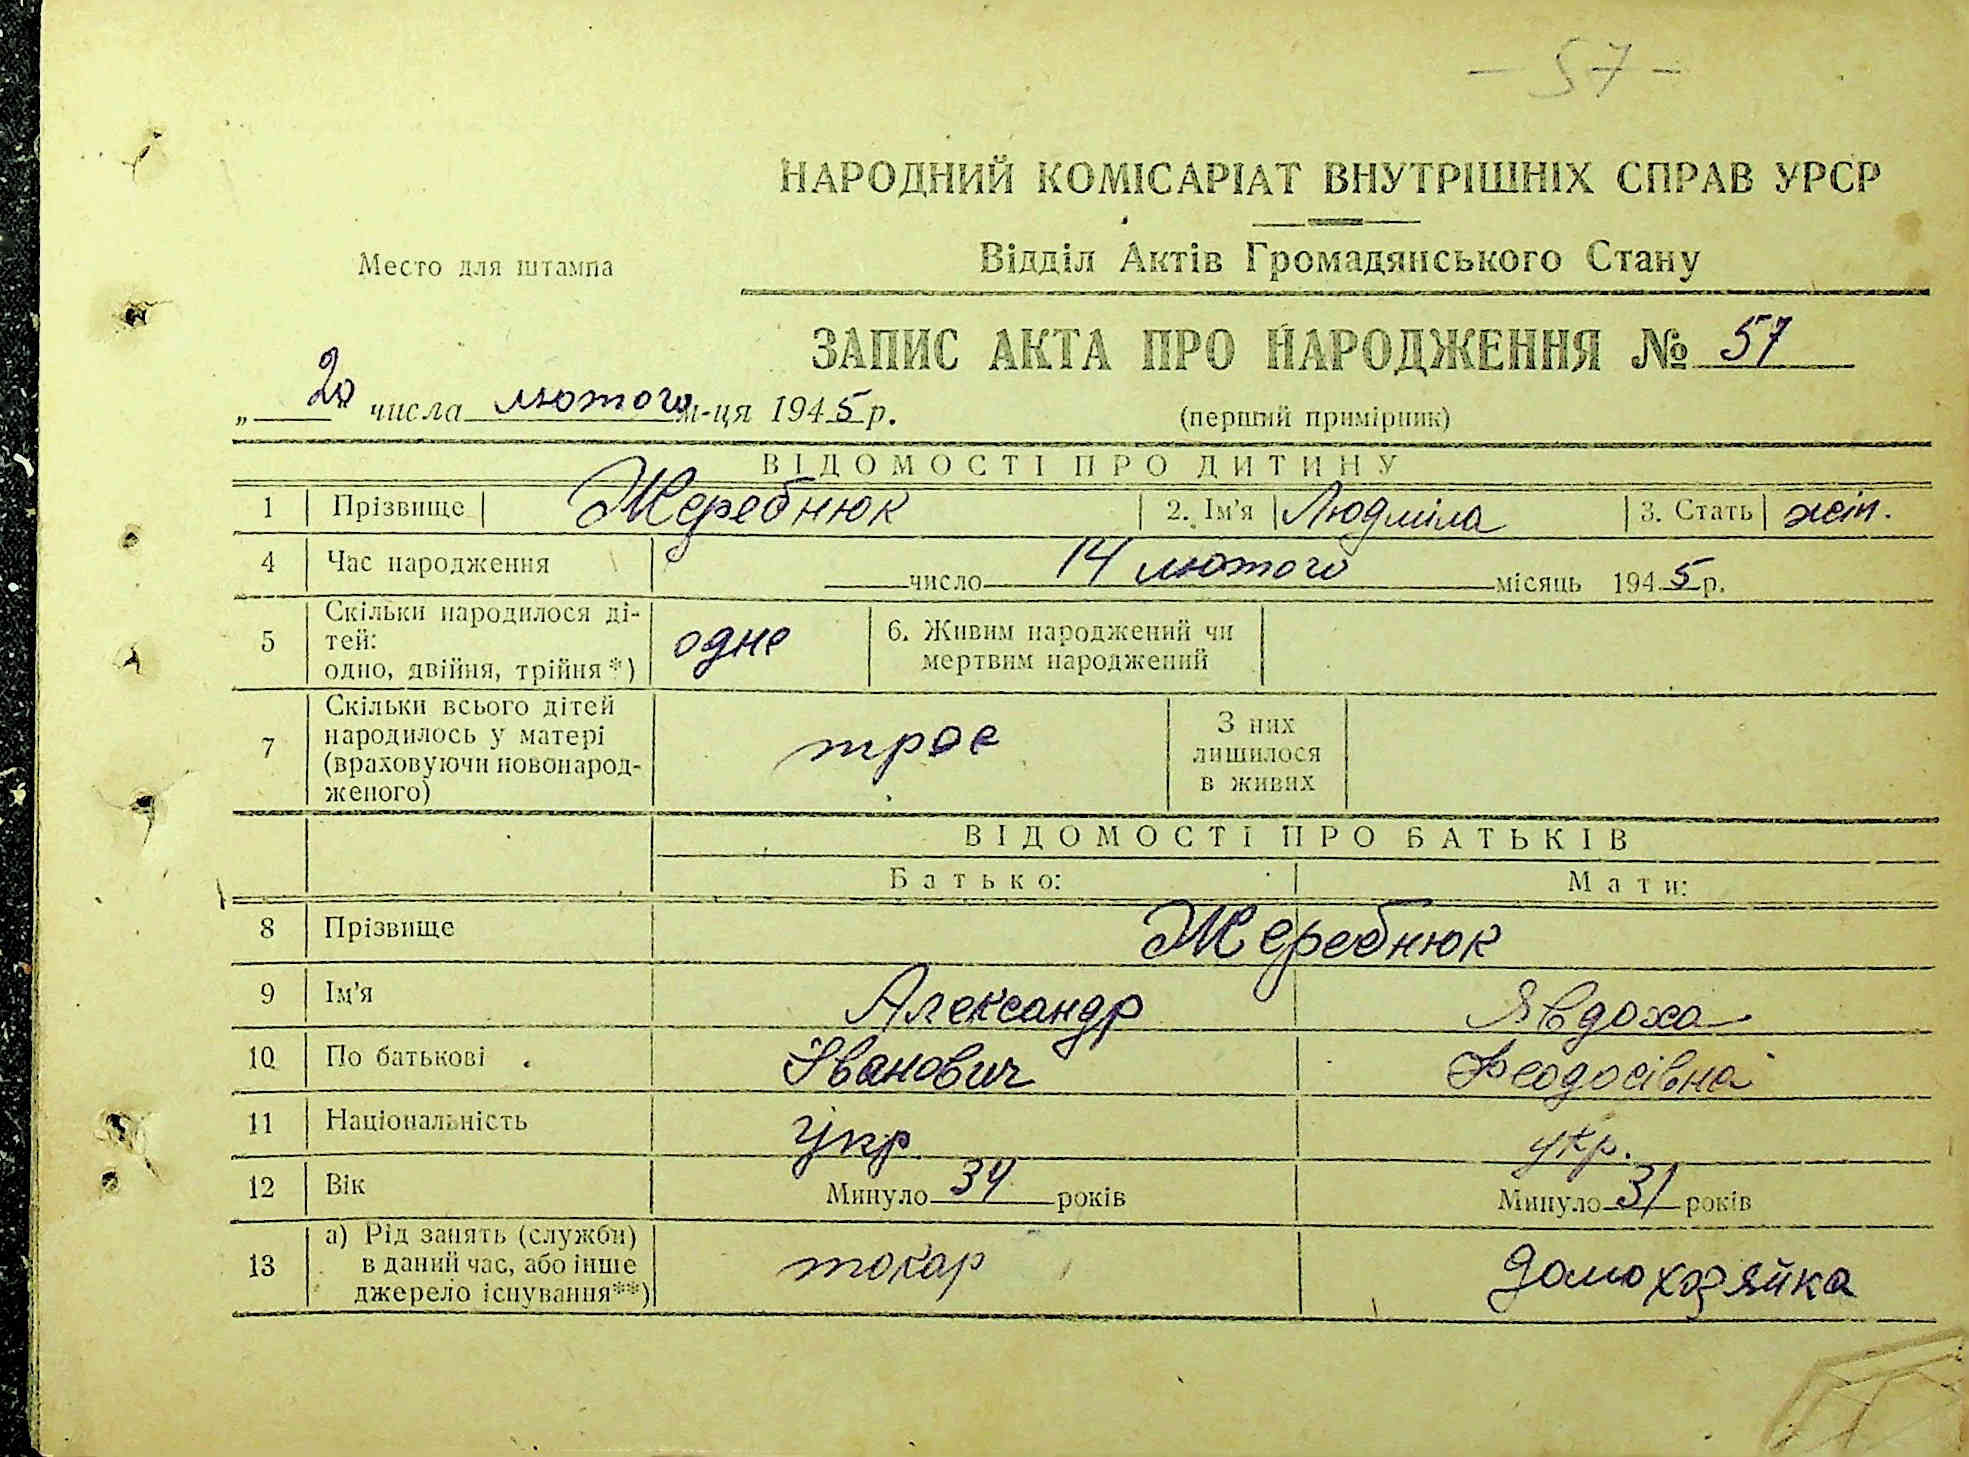 - 57 -
НАРОДНИЙ КОМІСАРІАТ ВНУТРІШНІХ СПРАВ УРСР
Место для штампа
Відділ Актів Громадянського Стану
ЗАПИС АКТА ПРО НАРОДЖЕННЯ № 57
„ 20 " числа лютого м-ця 1945 р.
(перший примірник)
ВІДОМОСТІ ПРО ДИТИНУ
1 Прізвище Жеребнюк 2. Ім'я Людміла 3. Стать жін.
4 Час народження число 14 лютого місяць 1945 р.
5 Скільки народилося ді-
тей:
одно, двійня, трійня*) одне
6. Живим народжений чи
мертвим народжений
7 Скільки всього дітей
народилось у матері
(враховуючи новонарод-
женого) троє
З них
лишилося
в живих
ВІДОМОСТІ ПРО БАТЬКІВ
Батько: Мати:
8 Прізвище Жеребнюк
9 Ім'я Александр Явдоха
10 По батькові Іванович Феодосівна
11 Національність укр укр.
12 Вік Минуло 34 років Минуло 31 років
13 а) Рід занять (служби)
в даний час, або інше
джерело існування**) токар домохозяйка